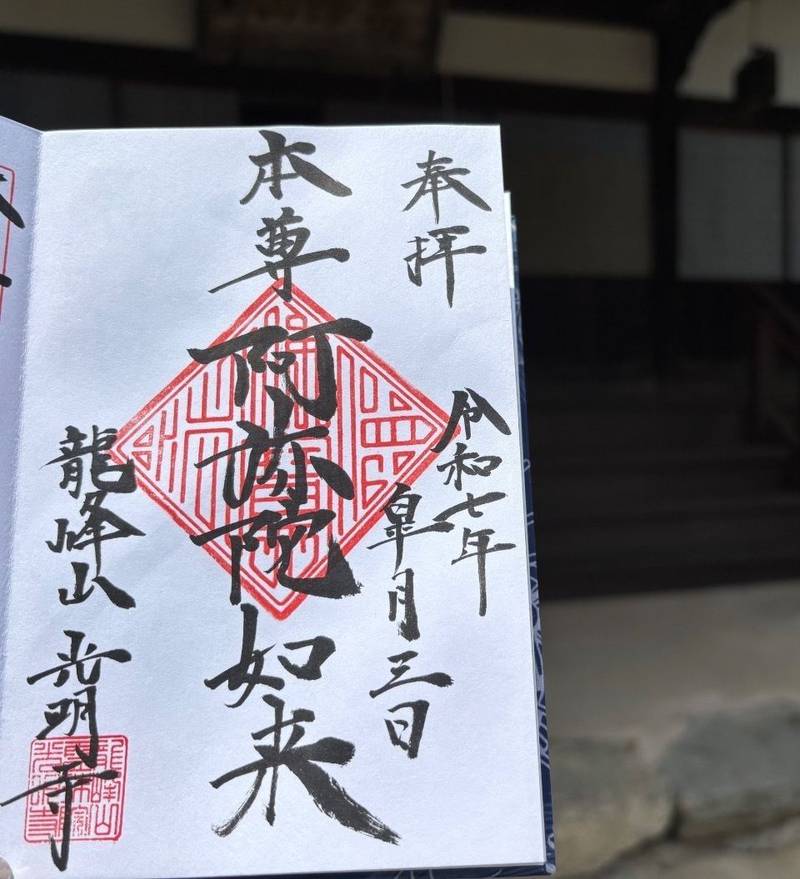 奉拝
令和七年
皐月三日
本尊 阿弥陀如来
龍峰山 光明寺